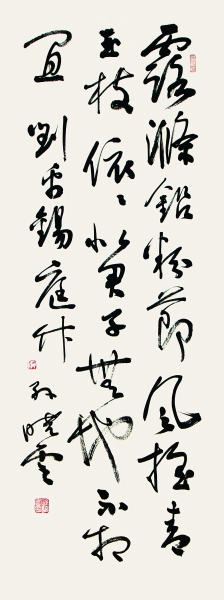 露滌鉛粉節風搖青
玉枝依〻似君子無地不相
宜 劉禹錫庭竹
孫曉雲